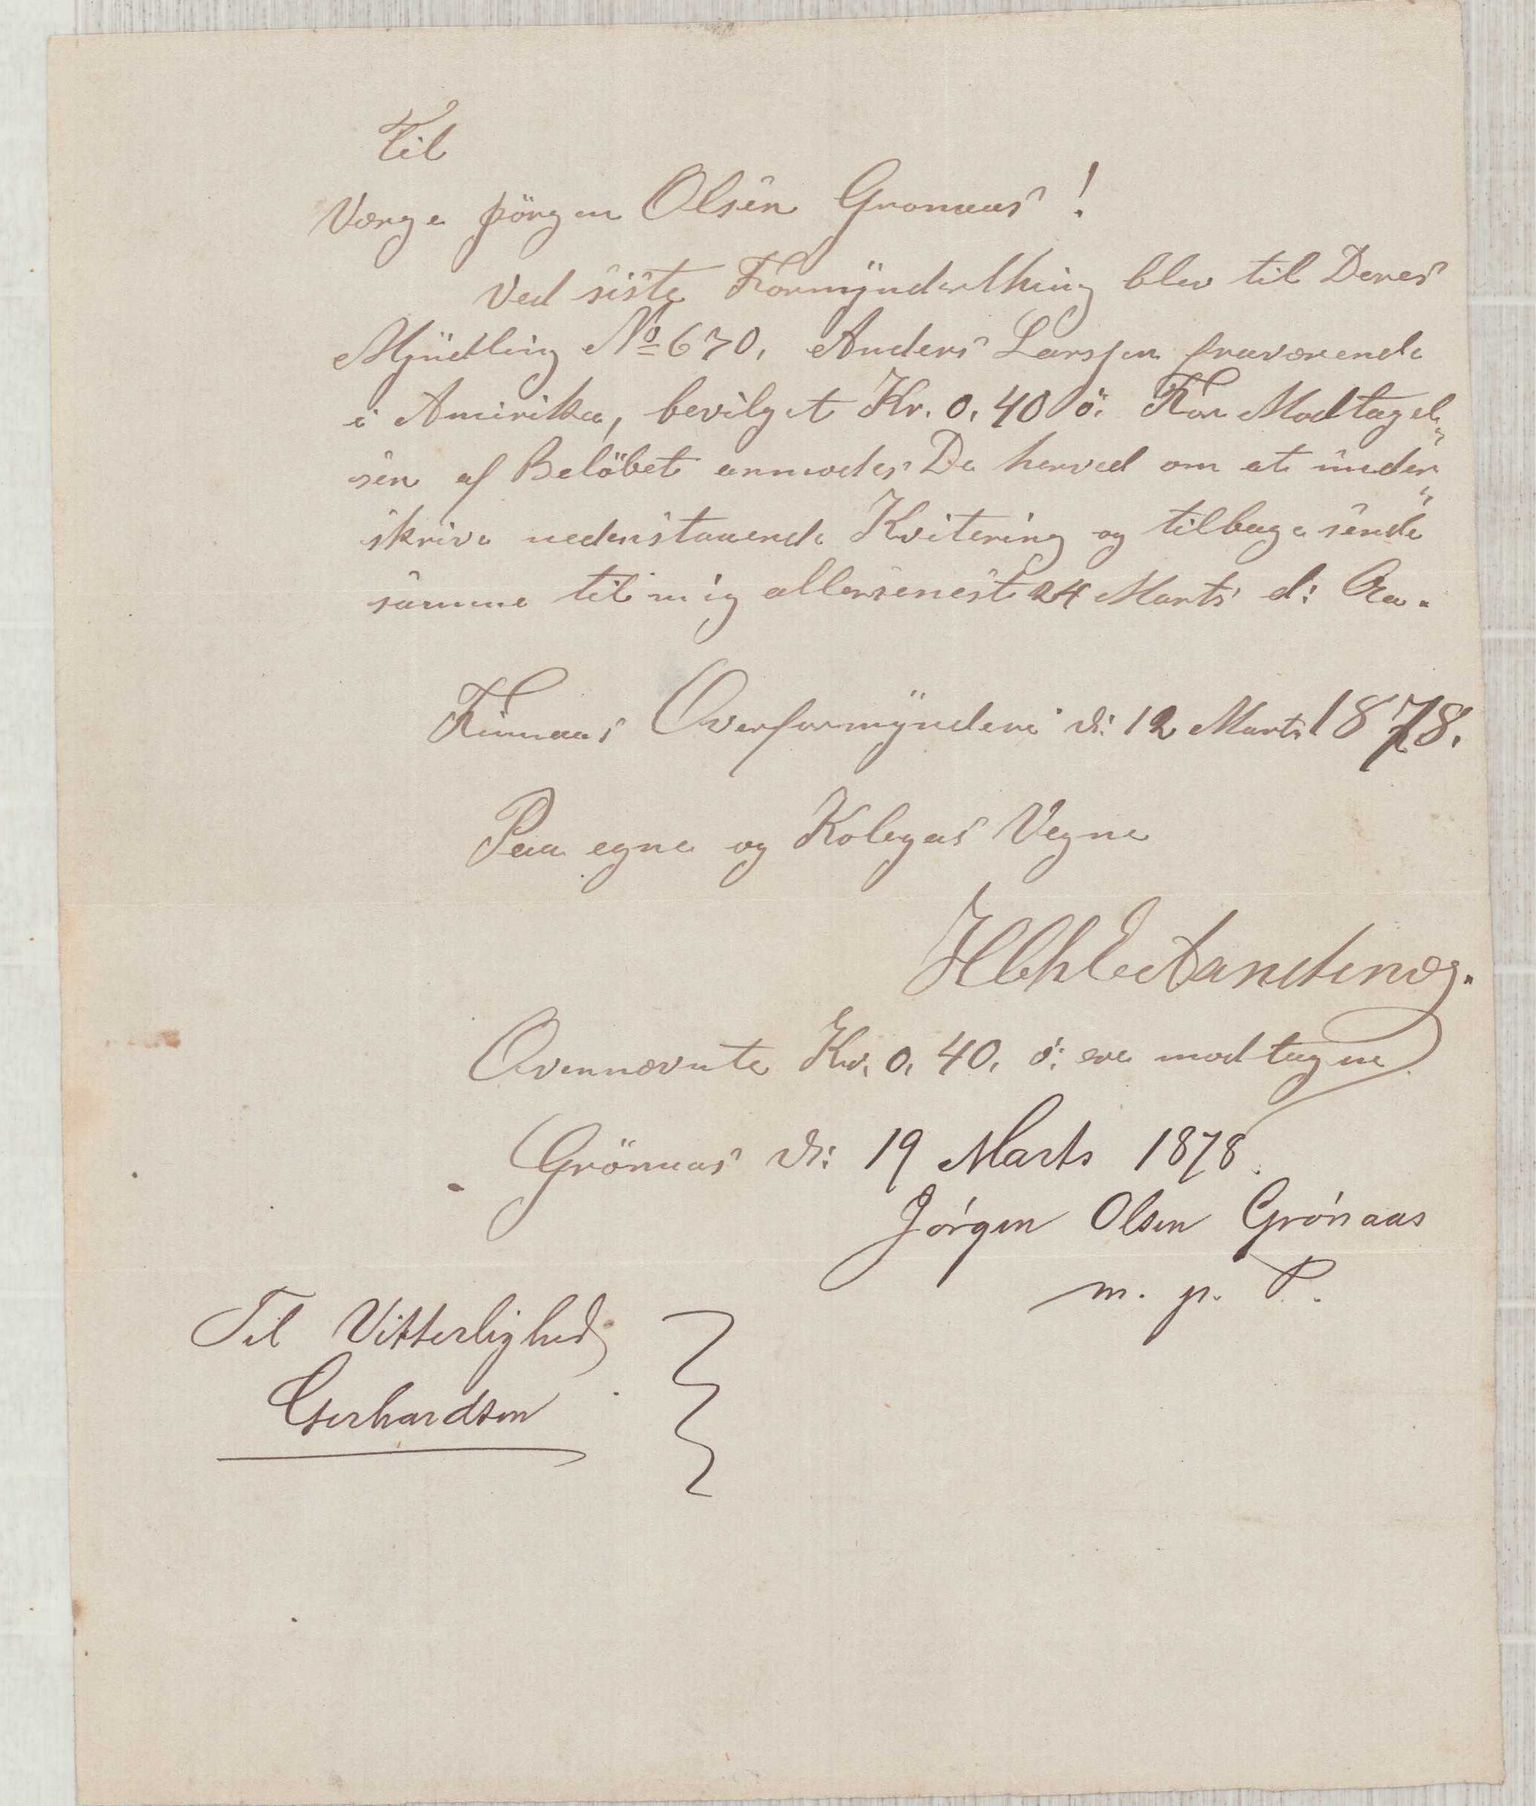 Til
Værge Jörgen Olsen Gronaas!
Ved siste Formÿnderthing blev til Deres
Mÿndling No 670, Anders Larssen fraværende
i Amirika, bevilget Kr. 0,40 ö: For Modtagel„
sen af Belöbet anmodes De herved om at under„
skrive nedenstaaende Kvitering og tilbagesende
samme til mig allersenest 24 Marts d: Aa.
Finnaas Overformÿnderi d: 12 Marts 1878.
Paa egne og Kolegas Vegne
Ovennævnte Kr. 0,40, ö: ere modtagne
Grönaas d: 19 Marts 1878.
Jörgen Olsen Grönaas
m. p. P.
Til Vitterlighed
Gerhardsen